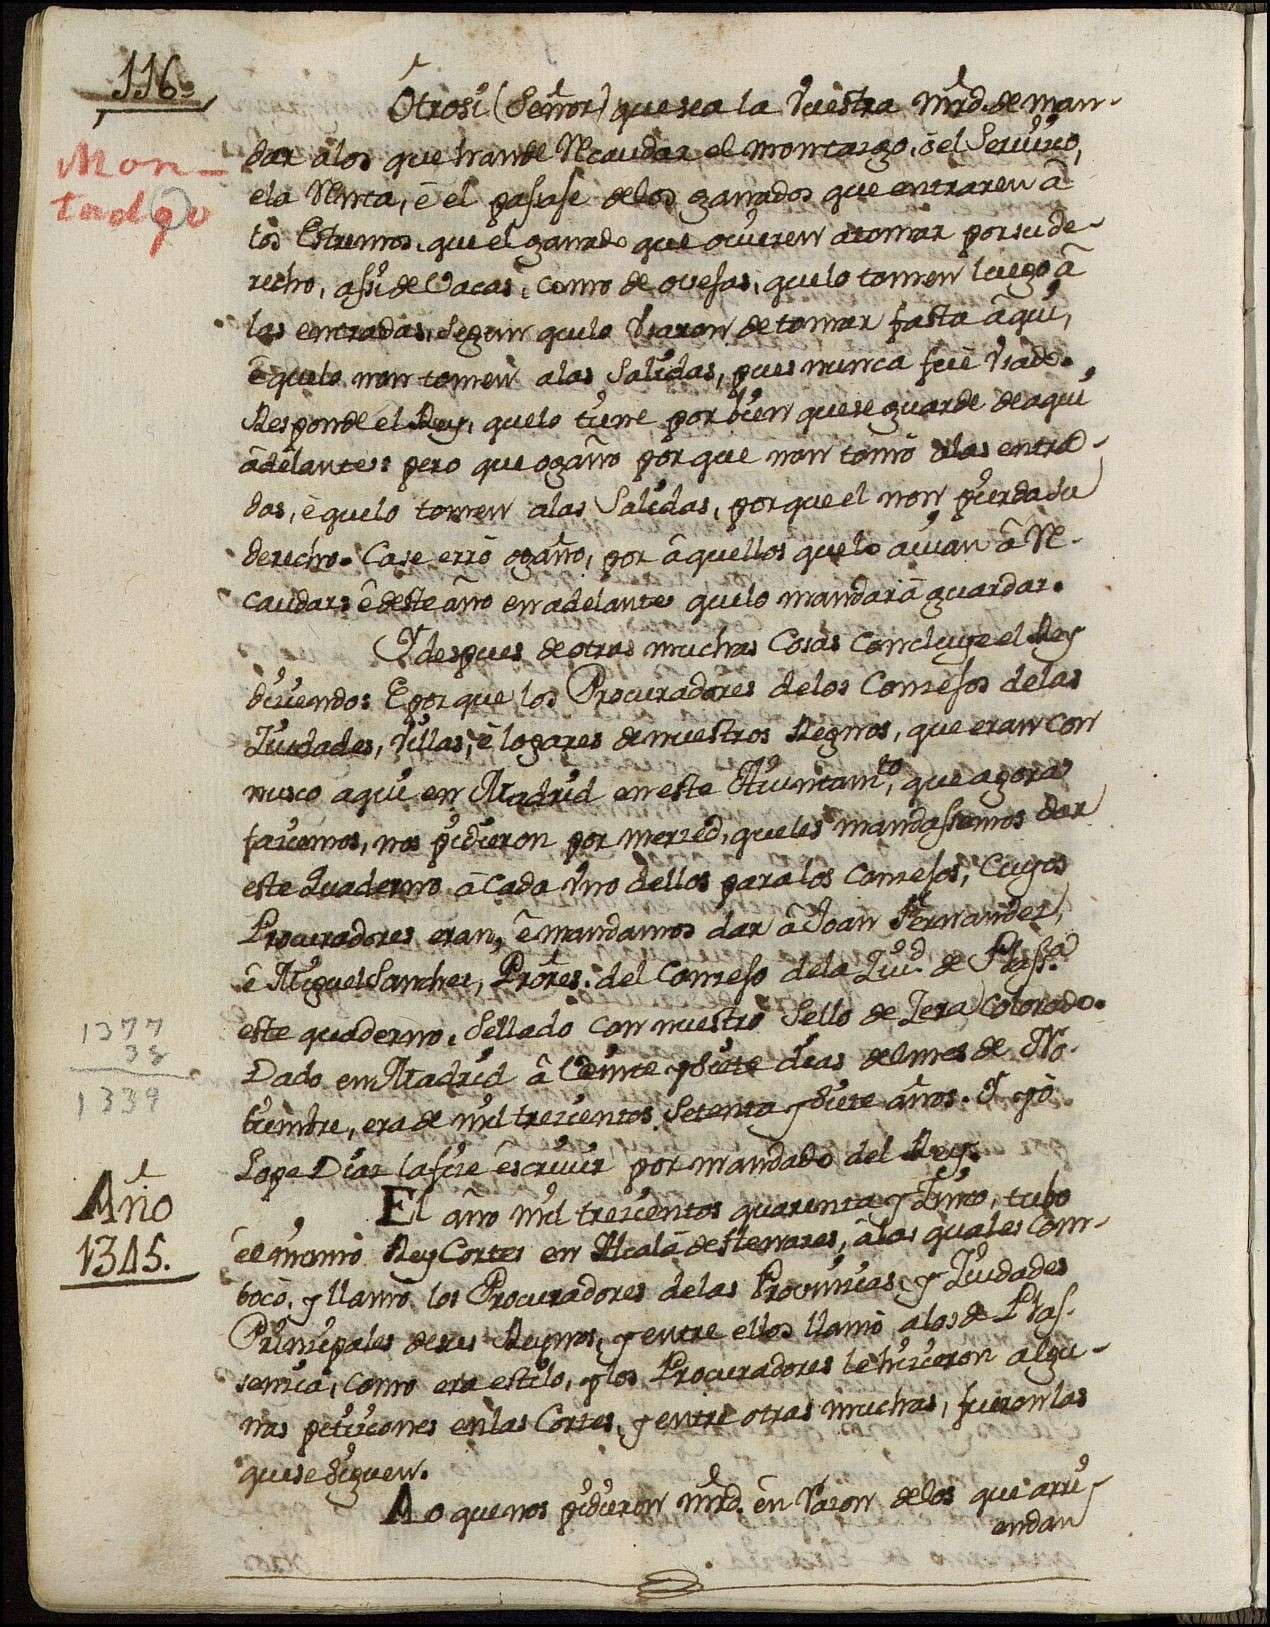 116.
Mon-
tadgo
Otrosi (Señor) que sea la Vuestra Mrd. de man-
dar alos que han de Recaudar el montazgo, ó el Servicio,
e la Renta, é el passaje delos ganados que entraren á
los Estremos, que el ganado que ovieren a tomar por su de-
recho, assi de Vacas, como de ovejas, quelo tomen luego á
las entradas, segun quelo Vsaron de tomar fasta áqui,
é quelo non tomen alas Salidas, pues nunca fué Vsado.
Responde el Rey, quelo tiene por bien quese guarde de aqui
ádelante: pero que ogaño por que non tomó alas entra-
das, é quelo tomen alas Salidas, por que el non pierda su
derecho. Ca se erró ogaño, por áquellos quelo avian á Re-
caudar: é deste año en adelante quelo mandará guardar.
Y despues de otras muchas Cosas Concluye el Rey
diciendo: E por que los Procuradores delos Conzejos delas
Ziudades, Villas, é logares de nuestros Regnos, que eran con
nusco aqui en Madrid en este Aiuntamto, que agora
facemos, nos pidieron por merzed, queles mandassemos dar
este Quaderno á Cada Vno dellos para los Conzejos, Cuyos
Procuradores eran, é mandamos dar á Joan Fernandez,
é Miguel Sanchez, Prores. del Conzejo dela Ziud. de Plasa.
este quaderno, Sellado con nuestro Sello de Zera Colorado.
Dado en Madrid á Veinte y Siete dias del mes de No-
1377
38
1339
viembre, era de mil trecientos Setenta y Siete años. Y yó
Lope Diaz la fice éscrivir por mandado del Rey.
Año
1345.
El año mil trecientos quarenta y Zinco, tubo
él mismo Rey Cortes en Alcalá de Henares, á las quales Com-
bocó, y llamó los Procuradores delas Provincias, y Ziudades
Principales de sus Reynos, y entre ellos llamó alos de Plas-
sencia, como era estilo, y los Procuradores le hicieron algu-
nas peticiones en las Cortes, y entre otras muchas, fueron las
que se siguen.
A lo que nos pidieron Mrd. én Razon delos que arri-
endan